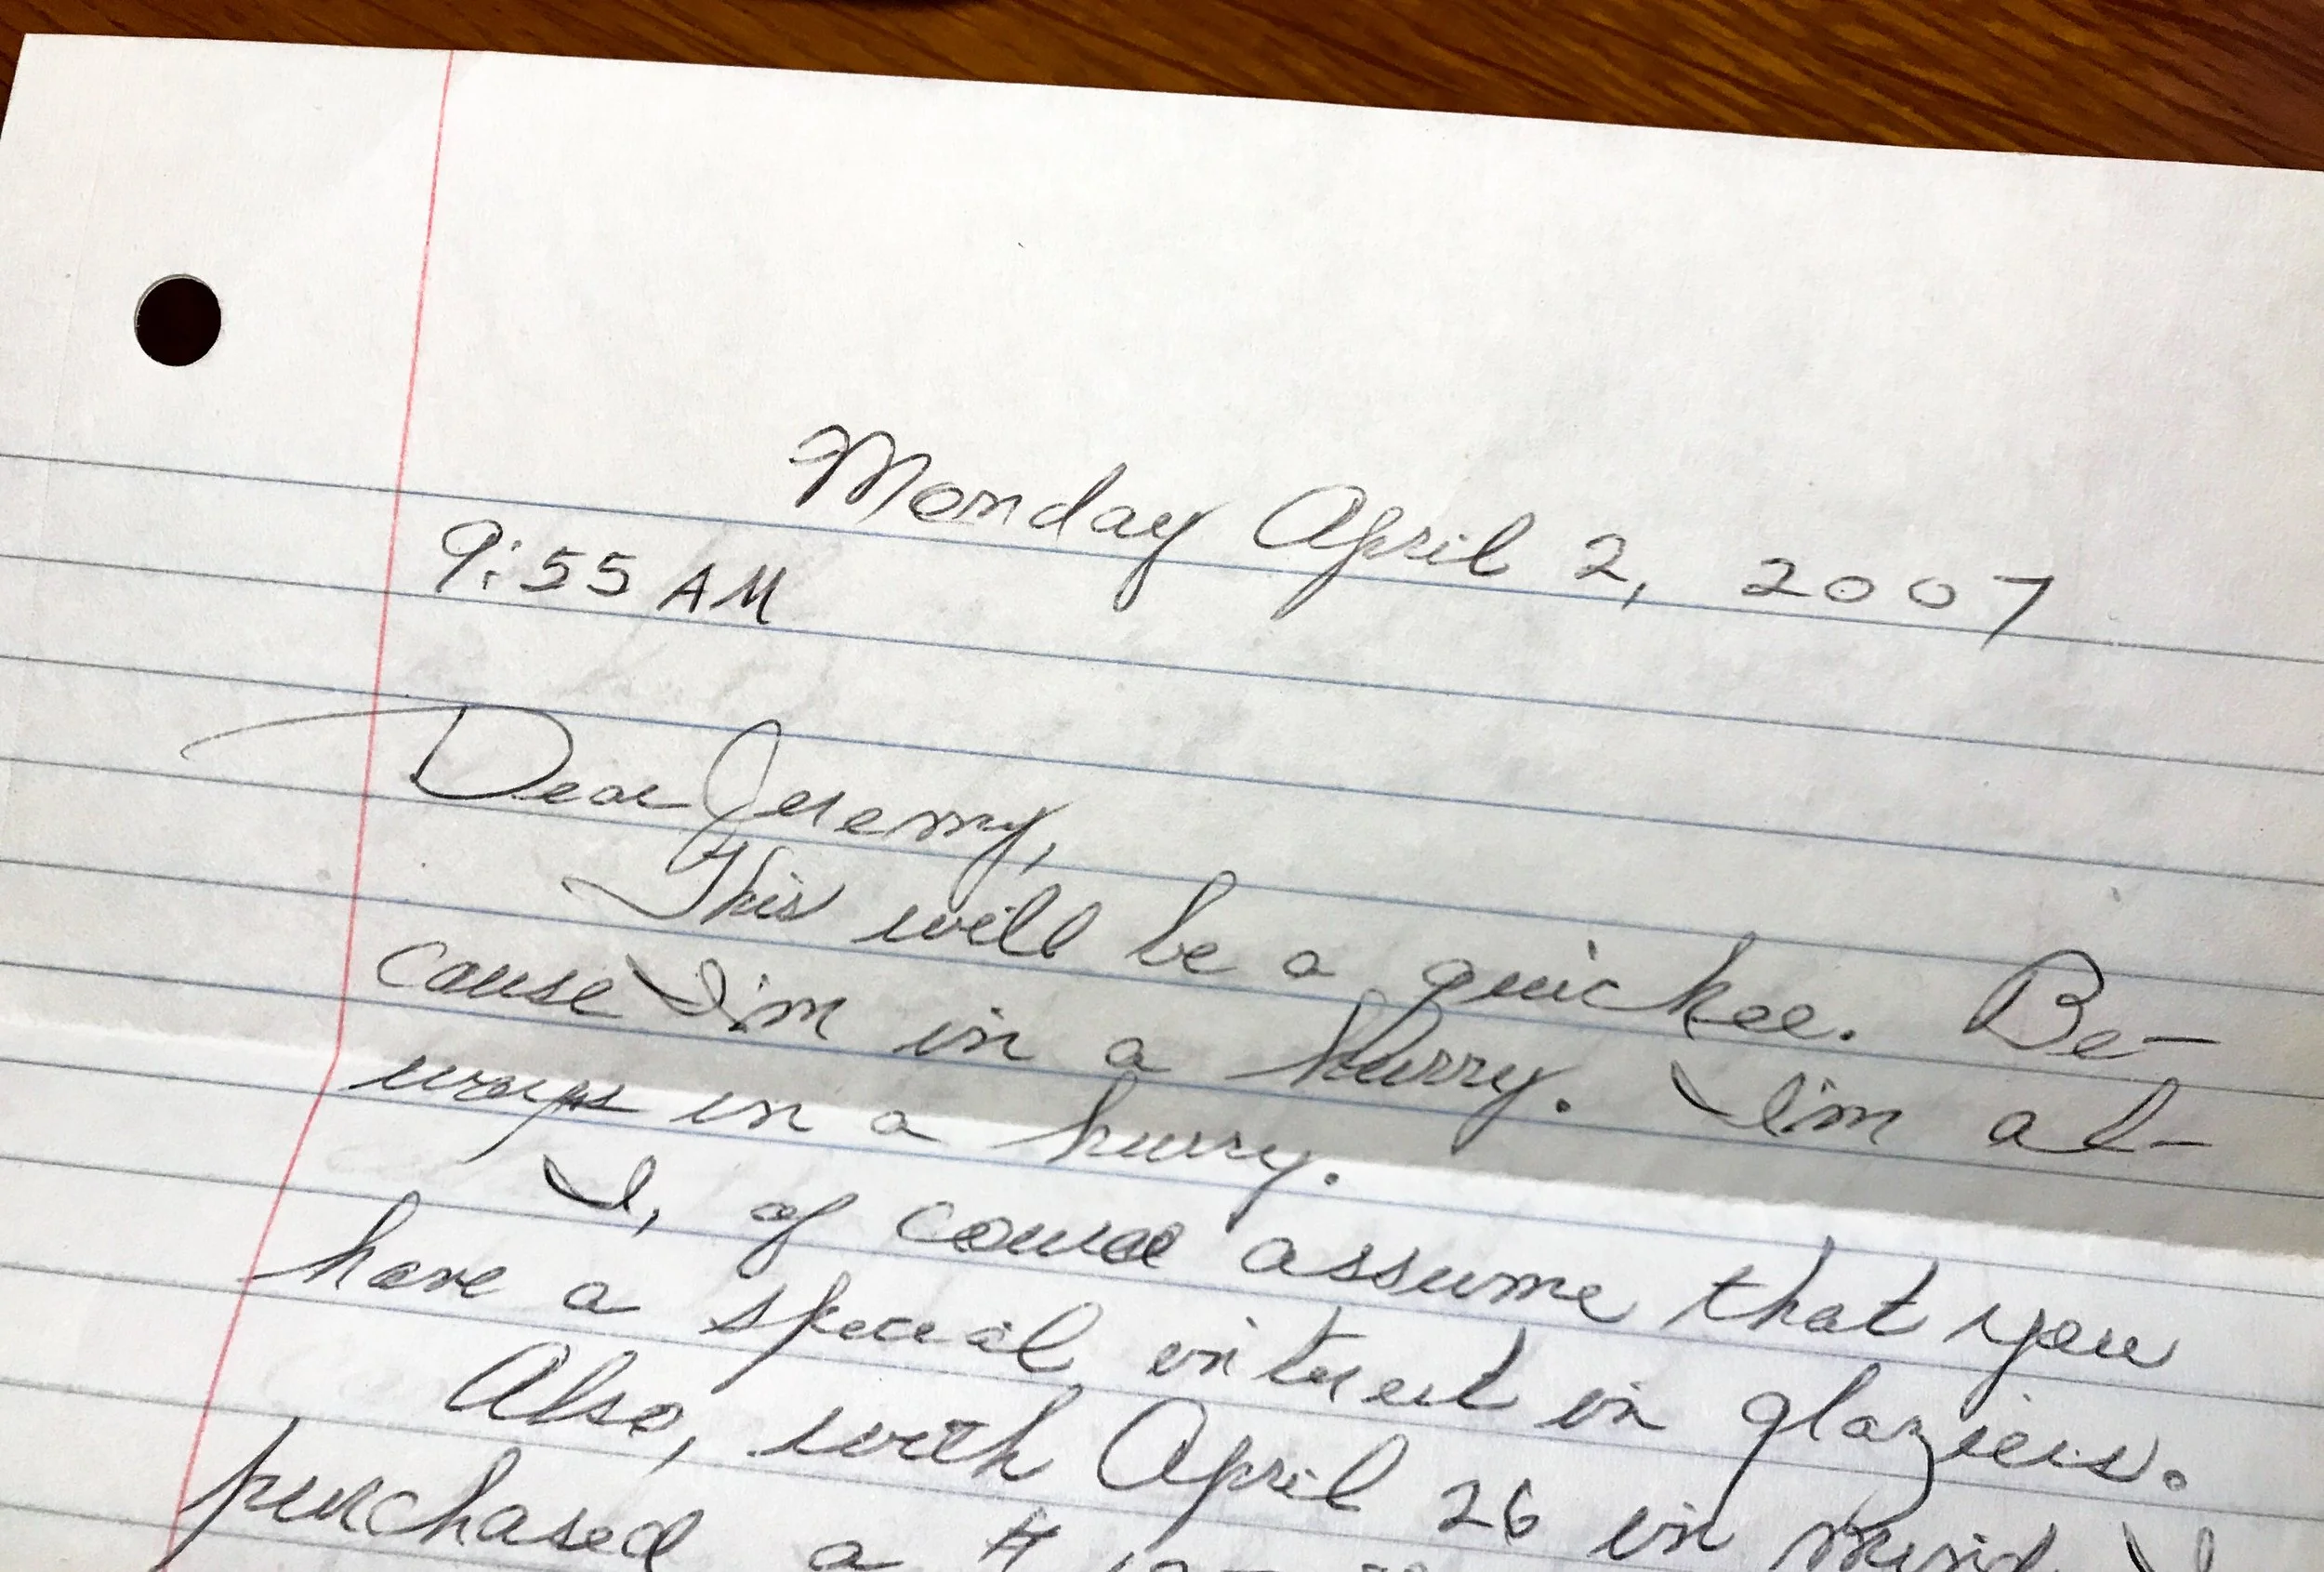 Monday April 2, 2007
9:55 AM
Dear Jeremy,
This will be a quickee. Be-
cause I'm in a hurry. I'm al-
ways in a hurry.
I, of course assume that you
have a special interest in glaziers.
Also, with April 26 in mind I
purchased a #